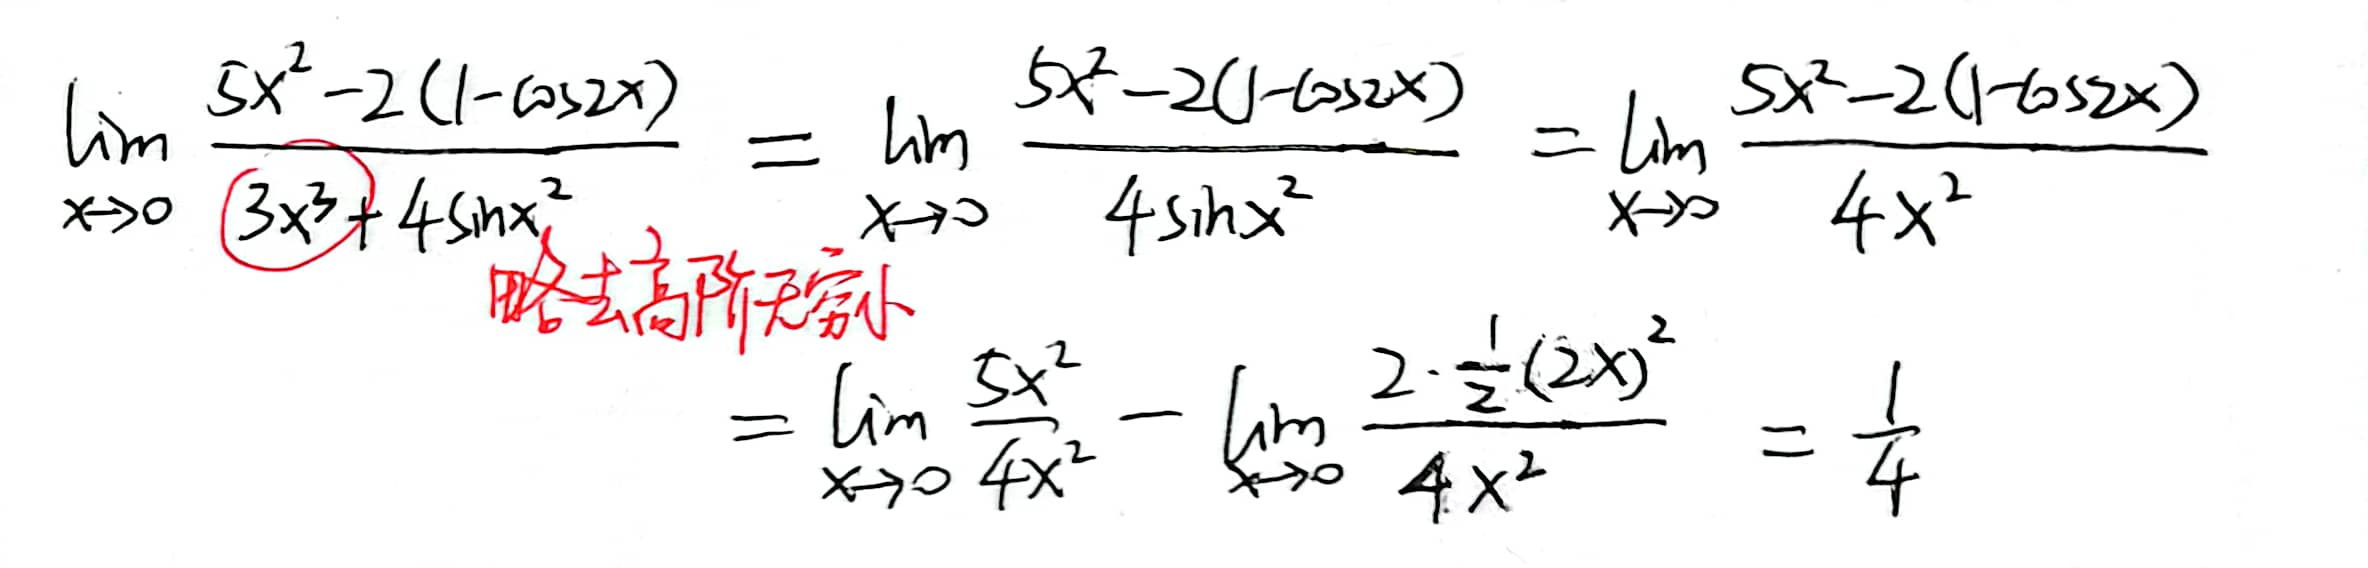 lim x→0 (5x² - 2(1-cos2x))/(3x³ + 4sinx²) = lim x→0 (5x² - 2(1-cos2x))/(4sinx²) = lim x→0 (5x² - 2(1-cos2x))/(4x²)
略去高阶无穷小
= lim x→0 5x²/4x² - lim x→0 (2·½(2x)²)/(4x²) = 1/4